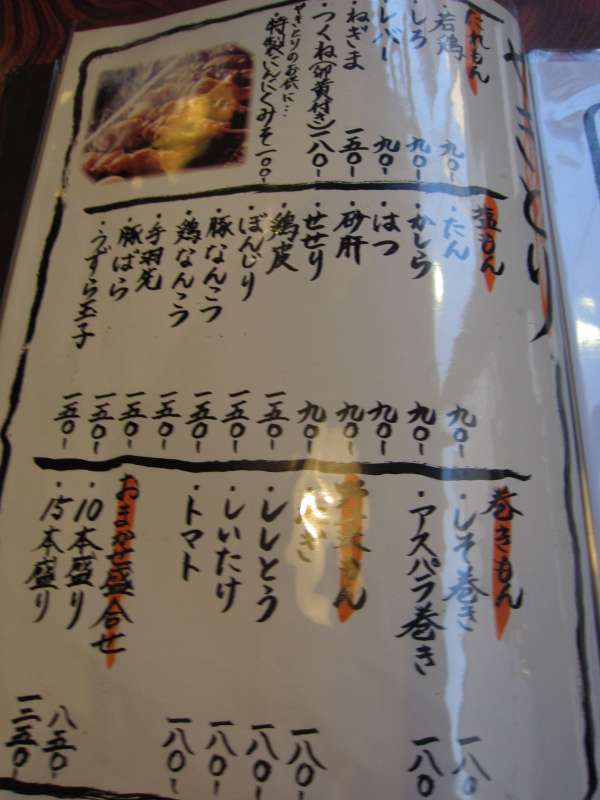 やきとり
たれもん
・若鶏 九〇-
・しろ 九〇-
・レバー 九〇-
・ねぎま 一五〇-
・つくね(卵黄付き) 一八〇-
やきとりのお供に…
特製にんにくみそ 一〇〇-
塩もん
・たん 九〇-
・かしら 九〇-
・はつ 九〇-
・砂肝 九〇-
・せせり 九〇-
・鶏皮 一五〇-
・ぼんじり 一五〇-
・豚なんこつ 一五〇-
・鶏なんこつ 一五〇-
・手羽先 一五〇-
・豚ばら 一五〇-
・うずら玉子 一五〇-
巻きもん
・しそ巻き 一八〇-
・アスパラ巻き 一八〇-
もん
ぎ 一八〇-
・ししとう 一八〇-
・しいたけ 一八〇-
・トマト 一八〇-
おまかせ盛合せ
・10本盛り 八五〇-
・15本盛り 一三五〇-